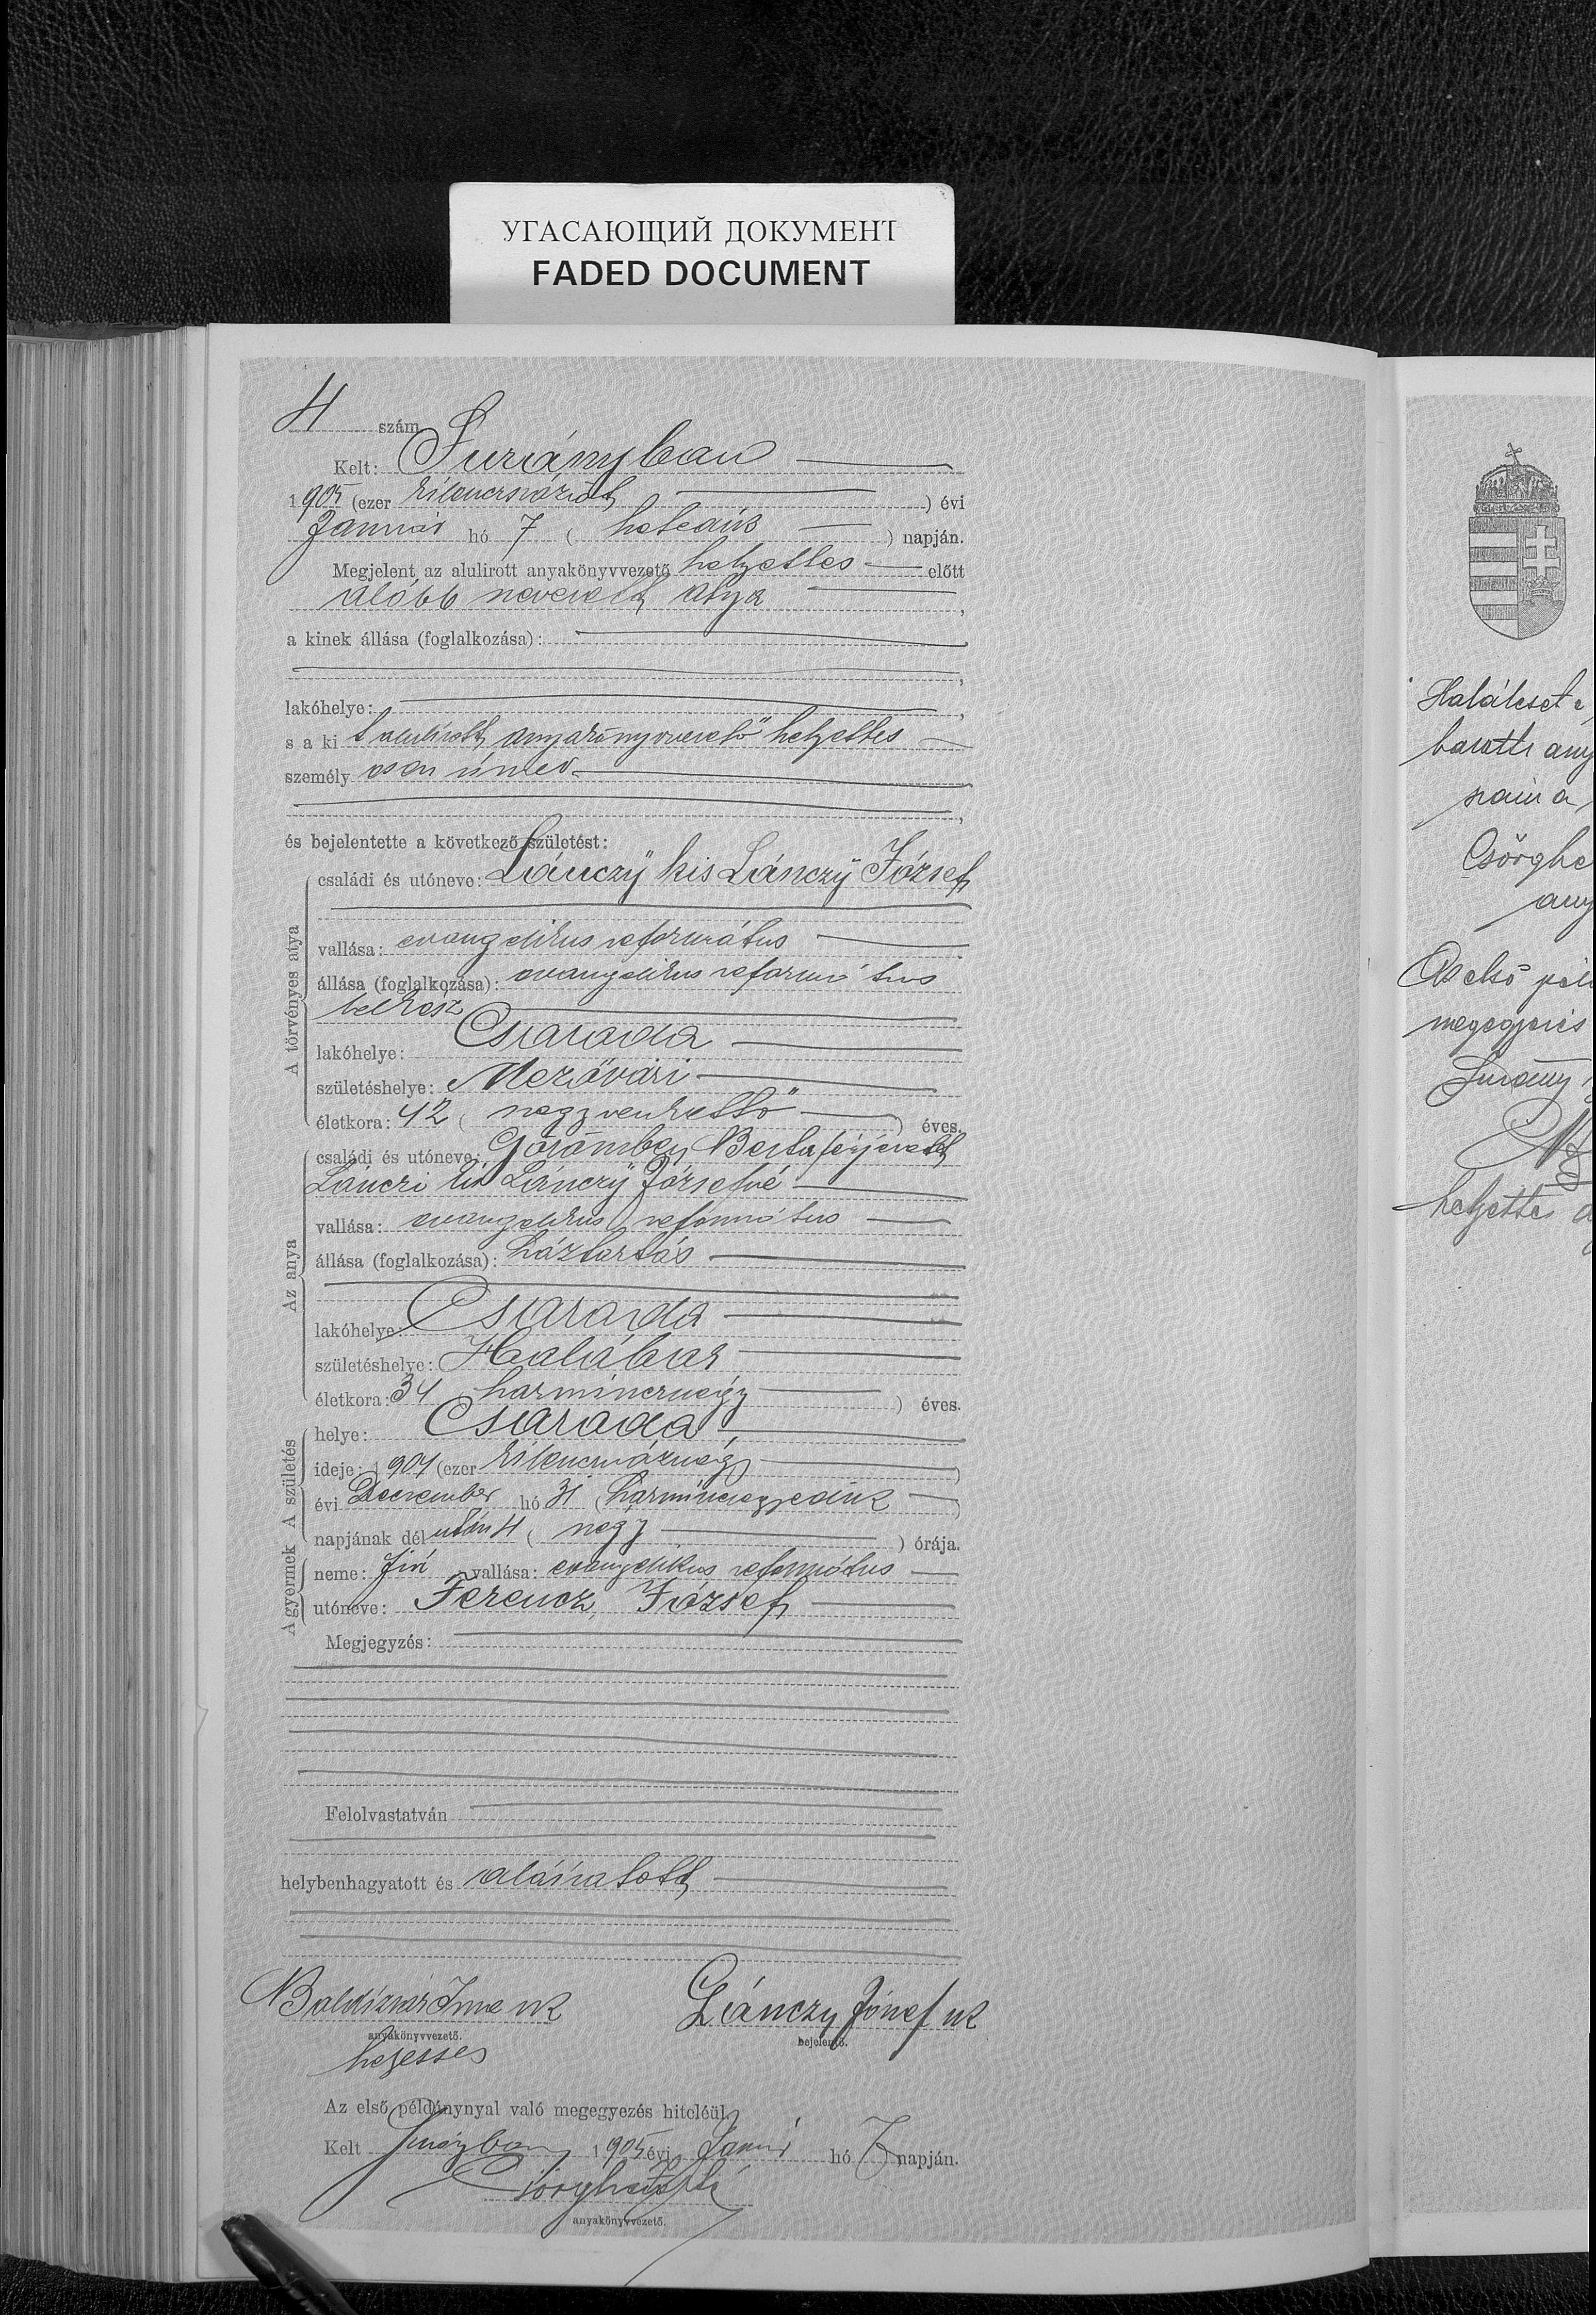 УГАСАЮЩИЙ ДОКУМЕНТ
FADED DOCUMENT
4 szám
Kelt: Surányban
1905 (ezer kilenczszázöt) évi
Január hó 7 (hetedik) napján.
Megjelent az alulirott anyakönyvvezető helyettes előtt
alább nevezett atya,
a kinek állása (foglalkozása):
lakóhelye:
s a ki alulirott anyakönyvvezető helyettes
személyesen ismer
és bejelentette a következő születést:
A törvényes atya
családi és utóneve: Lánczÿ kis Lánczÿ József
vallása: evangelikus református
állása (foglalkozása): evangelikus református
lelkész
lakóhelye: Csaroda
születéshelye: Mezővári
életkora: 42 (negyvenkettő) éves.
Az anya
családi és utóneve: Görömbey Berta férjezett
Lánczi kis Lánczÿ Józsefné
vallása: evangelikus református
állása (foglalkozása): háztartás
lakóhelye: Csaroda
születéshelye: Halábor
életkora: 34 harmincznégy) éves.
A születés
helye: Csaroda
ideje: 1904 (ezer kilenczszáznégy)
évi Deczember hó 31 (harminczegyedik)
napjának délután 4 (négy) órája.
A gyermek
neme: fiú vallása: evangelikus református
utóneve: Ferencz, József
Megjegyzés:
Felolvastatván
helybenhagyatott és aláiratott
Baldízsár Imre sk Lánczy József sk
anyakönyvvezető. bejelentő.
helyettes
Az első példánynyal való megegyezés hiteléül.
Kelt Surányban 1905 évi Január hó 7 napján.
anyakönyvvezető.
Haláleset
baratti any
száma
Csörghe
any
Az első pél
megegyezés
Surány
helyettes